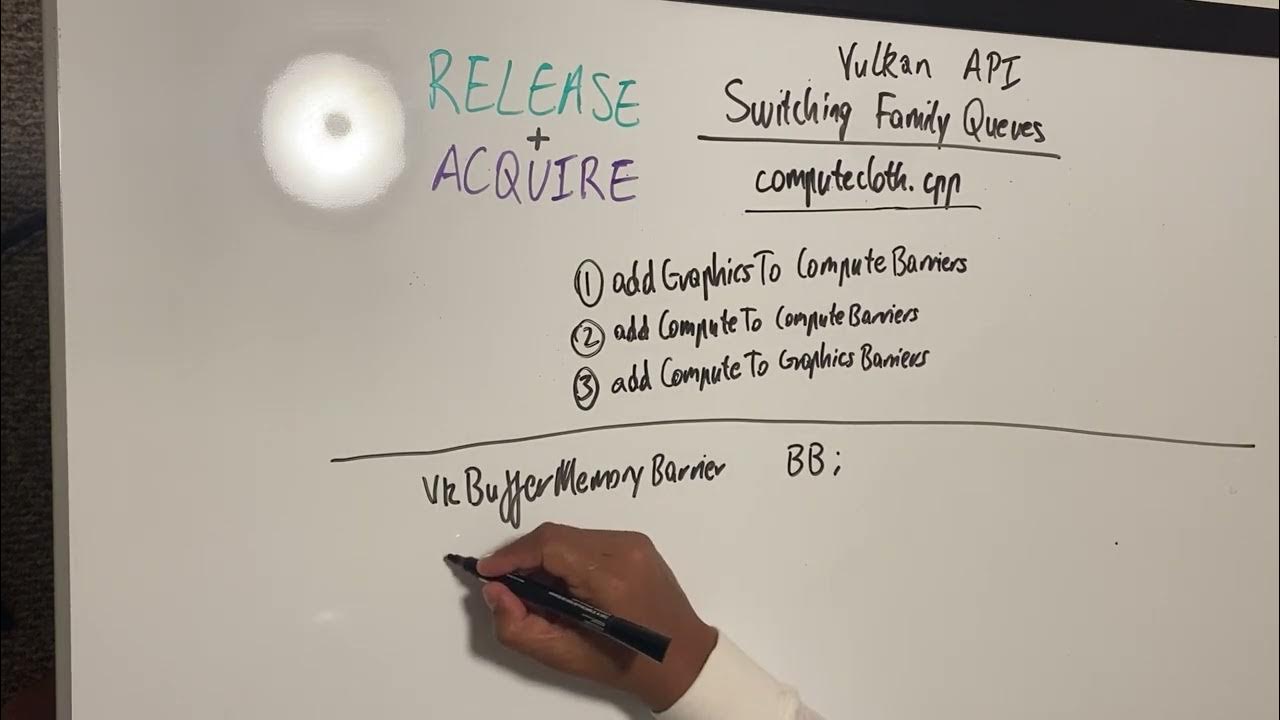 RELEASE
+
ACQUIRE
Vulkan API
Switching Family Queues
computecloth.cpp
① addGraphicsTo ComputeBarriers
② add ComputeTo ComputeBarriers
③ add ComputeTo GraphicsBarriers
VkBufferMemoryBarrier BB;